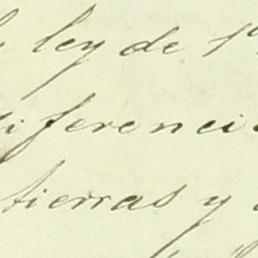 ley de 1
diferencia
tierras y